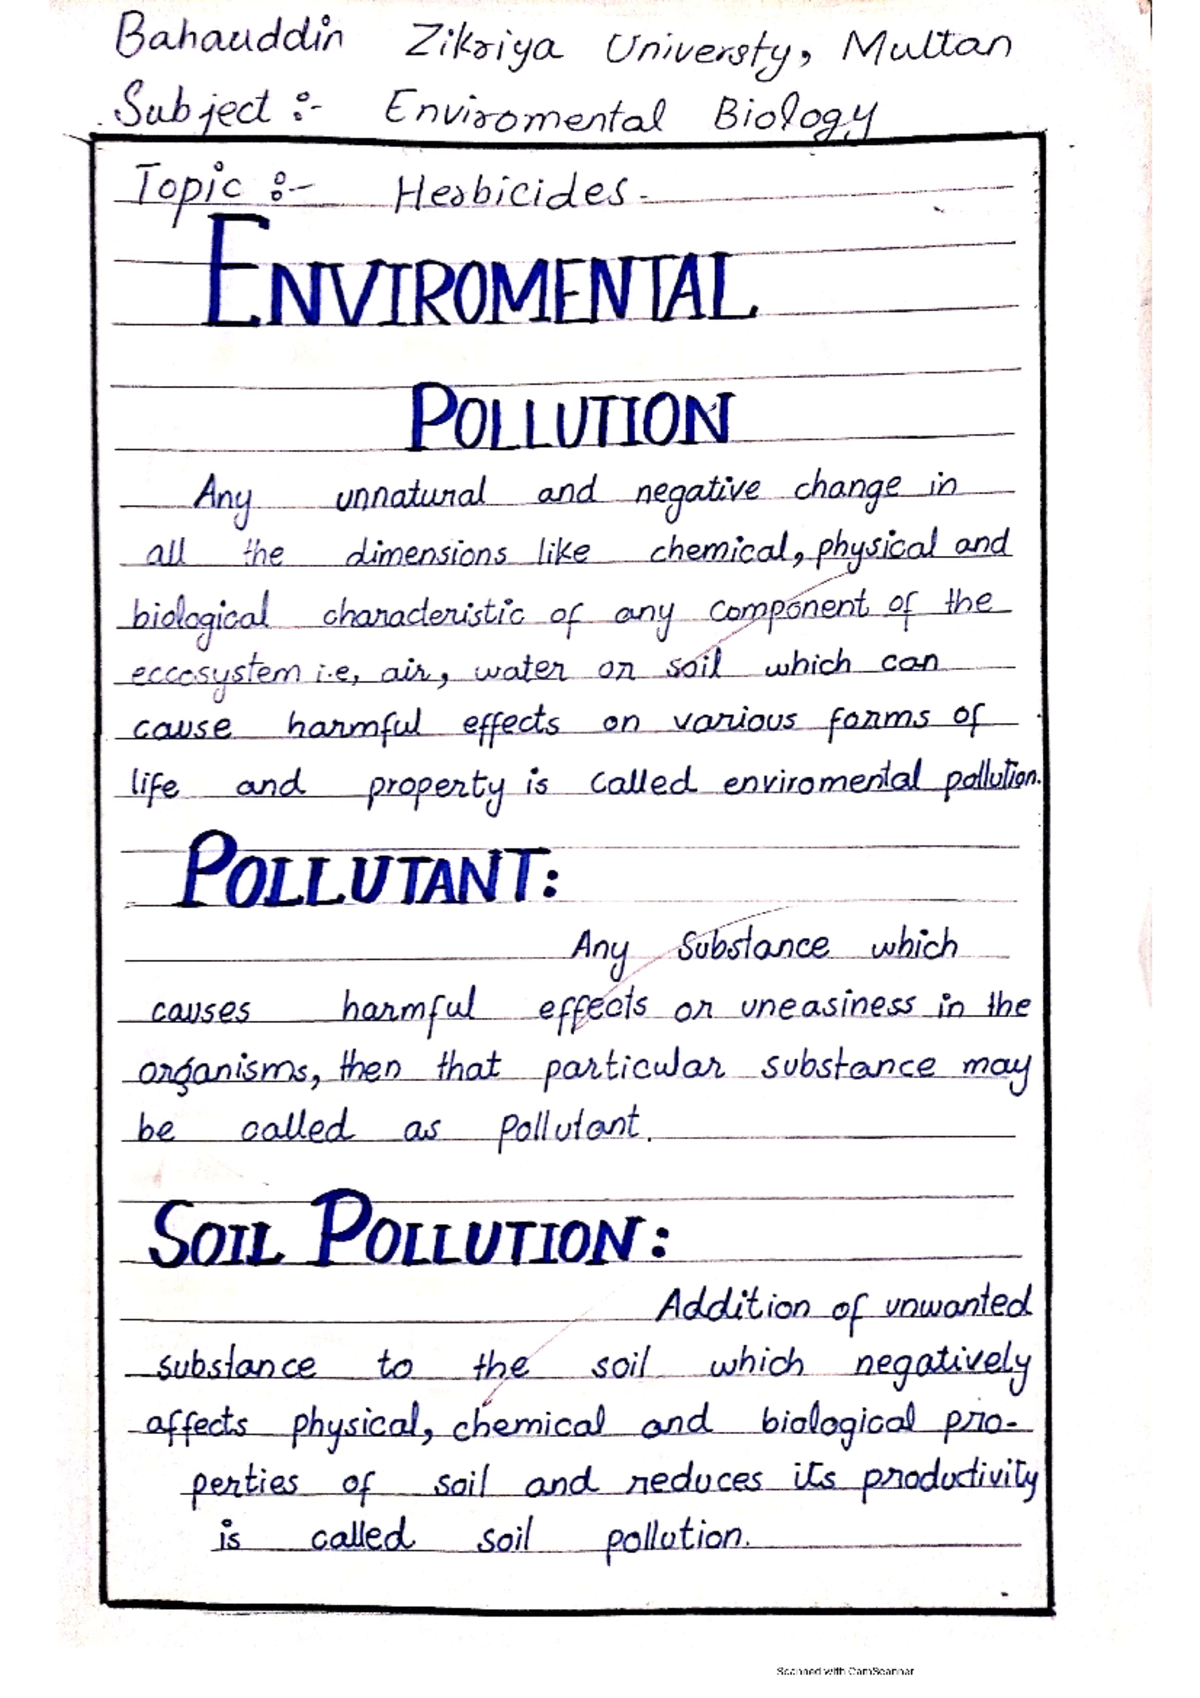 Bahauddin Zikriya Universty, Multan
Subject :- Enviromental Biology
Topic :- Herbicides.
ENVIROMENTAL
POLLUTION
Any unnatural and negative change in
all the dimensions like chemical, physical and
biological characteristic of any component of the
eccosystem i.e, air, water or soil which can
cause harmful effects on various forms of
life and property is called enviromental pollution.
POLLUTANT:
Any Substance which
causes harmful effects or uneasiness in the
organisms, then that particular substance may
be called as pollutant.
SOIL POLLUTION:
Addition of unwanted
substance to the soil which negatively
affects physical, chemical and biological pro-
perties of soil and reduces its productivity
is called soil pollution.
Scanned with CamScanner